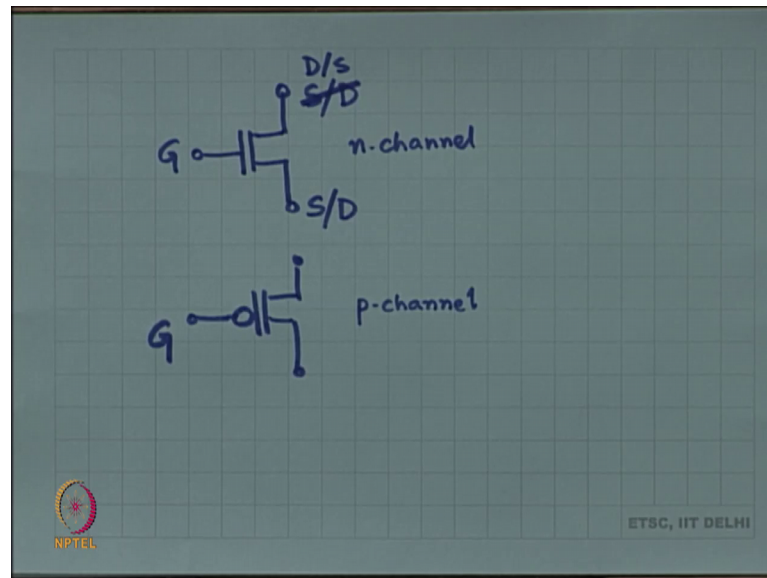 D/S
S/D
G
n-channel
S/D
G
p-channel
NPTEL
ETSC, IIT DELHI